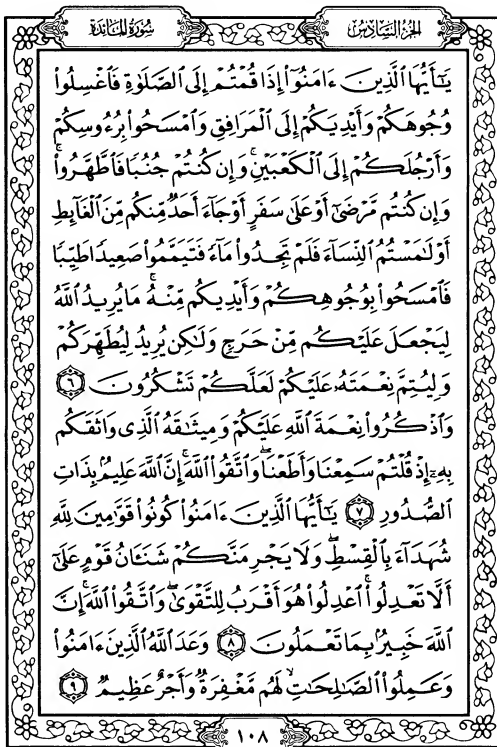 سُورَةُ المَائِدَةِ
الجُزْءُ السَّادِسُ
يَٰٓأَيُّهَا ٱلَّذِينَ ءَامَنُوٓا۟ إِذَا قُمْتُمْ إِلَى ٱلصَّلَوٰةِ فَٱغْسِلُوا۟
وُجُوهَكُمْ وَأَيْدِيَكُمْ إِلَى ٱلْمَرَافِقِ وَٱمْسَحُوا۟ بِرُءُوسِكُمْ
وَأَرْجُلَكُمْ إِلَى ٱلْكَعْبَيْنِ ۚ وَإِن كُنتُمْ جُنُبًا فَٱطَّهَّرُوا۟ ۚ
وَإِن كُنتُم مَّرْضَىٰٓ أَوْ عَلَىٰ سَفَرٍ أَوْ جَآءَ أَحَدٌ مِّنكُم مِّنَ ٱلْغَآئِطِ
أَوْ لَٰمَسْتُمُ ٱلنِّسَآءَ فَلَمْ تَجِدُوا۟ مَآءً فَتَيَمَّمُوا۟ صَعِيدًا طَيِّبًا
فَٱمْسَحُوا۟ بِوُجُوهِكُمْ وَأَيْدِيكُم مِّنْهُ ۚ مَا يُرِيدُ ٱللَّهُ
لِيَجْعَلَ عَلَيْكُم مِّنْ حَرَجٍ وَلَٰكِن يُرِيدُ لِيُطَهِّرَكُمْ
وَلِيُتِمَّ نِعْمَتَهُۥ عَلَيْكُمْ لَعَلَّكُمْ تَشْكُرُونَ ٦
وَٱذْكُرُوا۟ نِعْمَةَ ٱللَّهِ عَلَيْكُمْ وَمِيثَٰقَهُ ٱلَّذِى وَاثَقَكُم
بِهِۦٓ إِذْ قُلْتُمْ سَمِعْنَا وَأَطَعْنَا ۖ وَٱتَّقُوا۟ ٱللَّهَ ۚ إِنَّ ٱللَّهَ عَلِيمٌۢ بِذَاتِ
ٱلصُّدُورِ ٧ يَٰٓأَيُّهَا ٱلَّذِينَ ءَامَنُوا۟ كُونُوا۟ قَوَّٰمِينَ لِلَّهِ
شُهَدَآءَ بِٱلْقِسْطِ ۖ وَلَا يَجْرِمَنَّكُمْ شَنَـَٔانُ قَوْمٍ عَلَىٰٓ
أَلَّا تَعْدِلُوا۟ ۚ ٱعْدِلُوا۟ هُوَ أَقْرَبُ لِلتَّقْوَىٰ ۖ وَٱتَّقُوا۟ ٱللَّهَ ۚ إِنَّ
ٱللَّهَ خَبِيرٌۢ بِمَا تَعْمَلُونَ ٨ وَعَدَ ٱللَّهُ ٱلَّذِينَ ءَامَنُوا۟
وَعَمِلُوا۟ ٱلصَّٰلِحَٰتِ ۙ لَهُم مَّغْفِرَةٌ وَأَجْرٌ عَظِيمٌ ٩
١٠٨